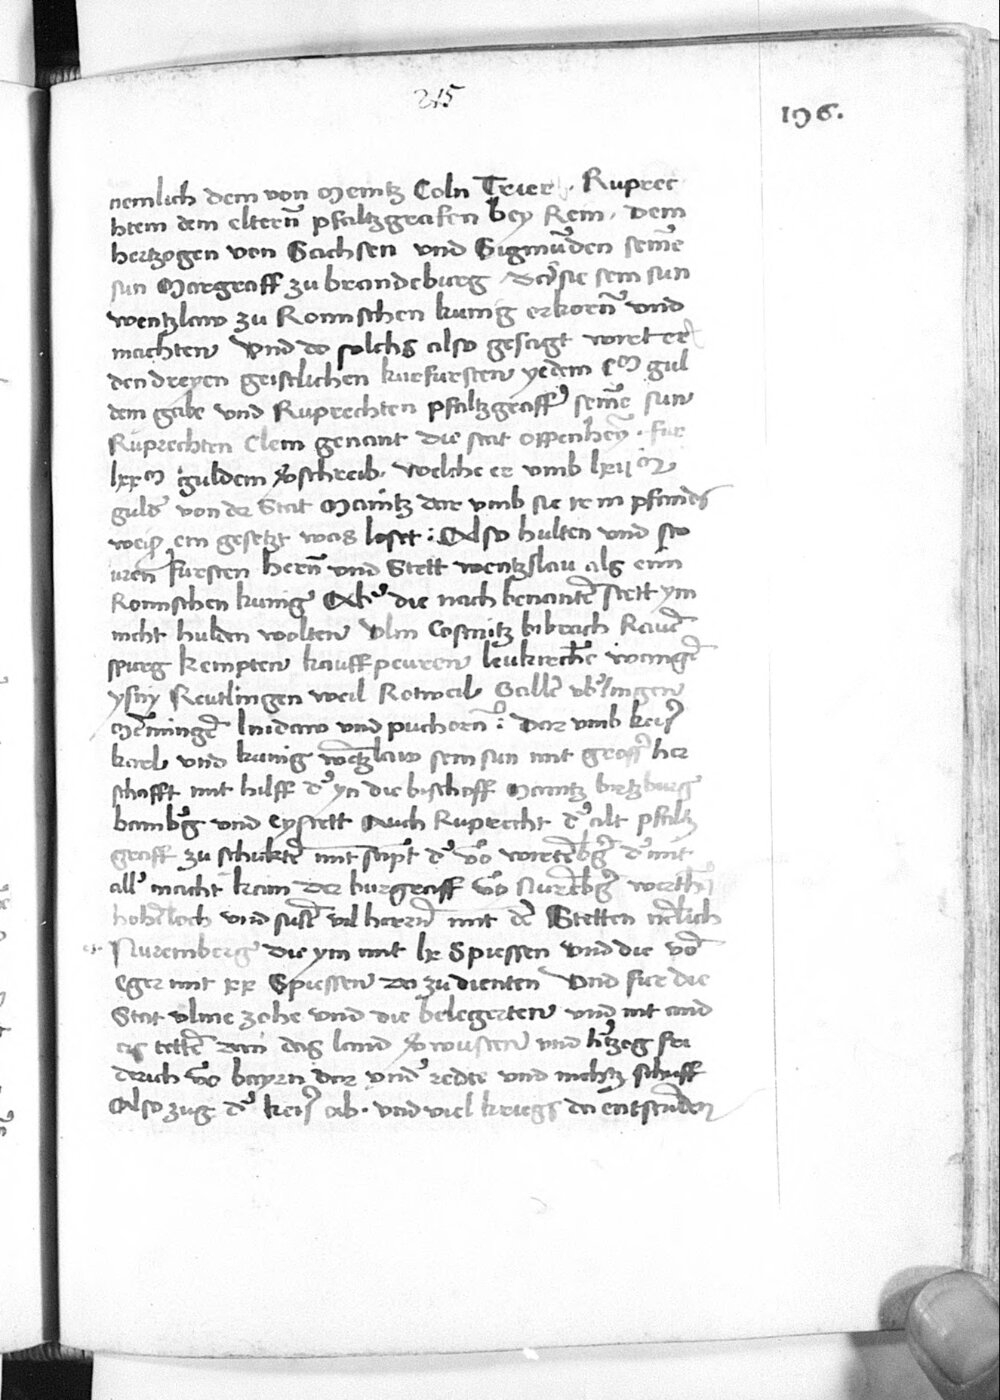 215
196.
nemlich dem von Mentz Coln Trier. Ruprec
htem dem elternn pfaltzgrafen bey Rein. Dem
hertzogen von Sachsen vnd Sigmunden seine
sun Margraff zu brandeburg das sie sein sun
wentzlaw zu Romischen kunig erkornn vnd
machten Vnd do solchs also gesagt wret er
den dreyen geistlichen kurfursten yedem Cm gul
dein gabe vnd Ruprechten pfaltzgraff seine sun
Ruprechten Clem genant die stat oppenheym. fur
lxxm gulden verschreib. welche er vmb lxiim
guld von der Stat Meintz dar vmb sie ir in pfands
weiß ein gesetzt was loset: Also hulten vnd swo
uren fursten hernn vnd Stett wentzslau als ein
Romischen kunig Aber die nach benanten stett ym
nicht hulden wolten Vlm Costnitz bibrach Raue
spurg kempten kauffpeuren leukirche wange
ysny Reutlingen weil Rotweil Galle vberlingen
Meminge lindaw vnd puchornn: Dar vmb keiser
karel vnd kunig wetzlaw sein sun mit grosser her
schafft mit hilff der yn die bischoff Meintz wirtzburg
bamberg vnd Eystett Auch Ruprecht der alt pfaltz
graff zu schickte mit sampt der von wirteberg der mit
aller macht kam Der burgraff von Nureberg werthem
hoheloch vnd suste vil herrnn mit de Stetten nelich
Nuremberg die ym mit lx Spiessen vnd die von
Eger mit xx Spiessen do zu dienten Vnd fur die
Stat vlme zohe vnd die belegerten vnd nit and
ers tette dan das land verwusten vnd hertzog fri
derich von bayrn dar vnder redte vnd nichtz schuff
Also zug der keiser ab. vnd viel kriegs do entstunden